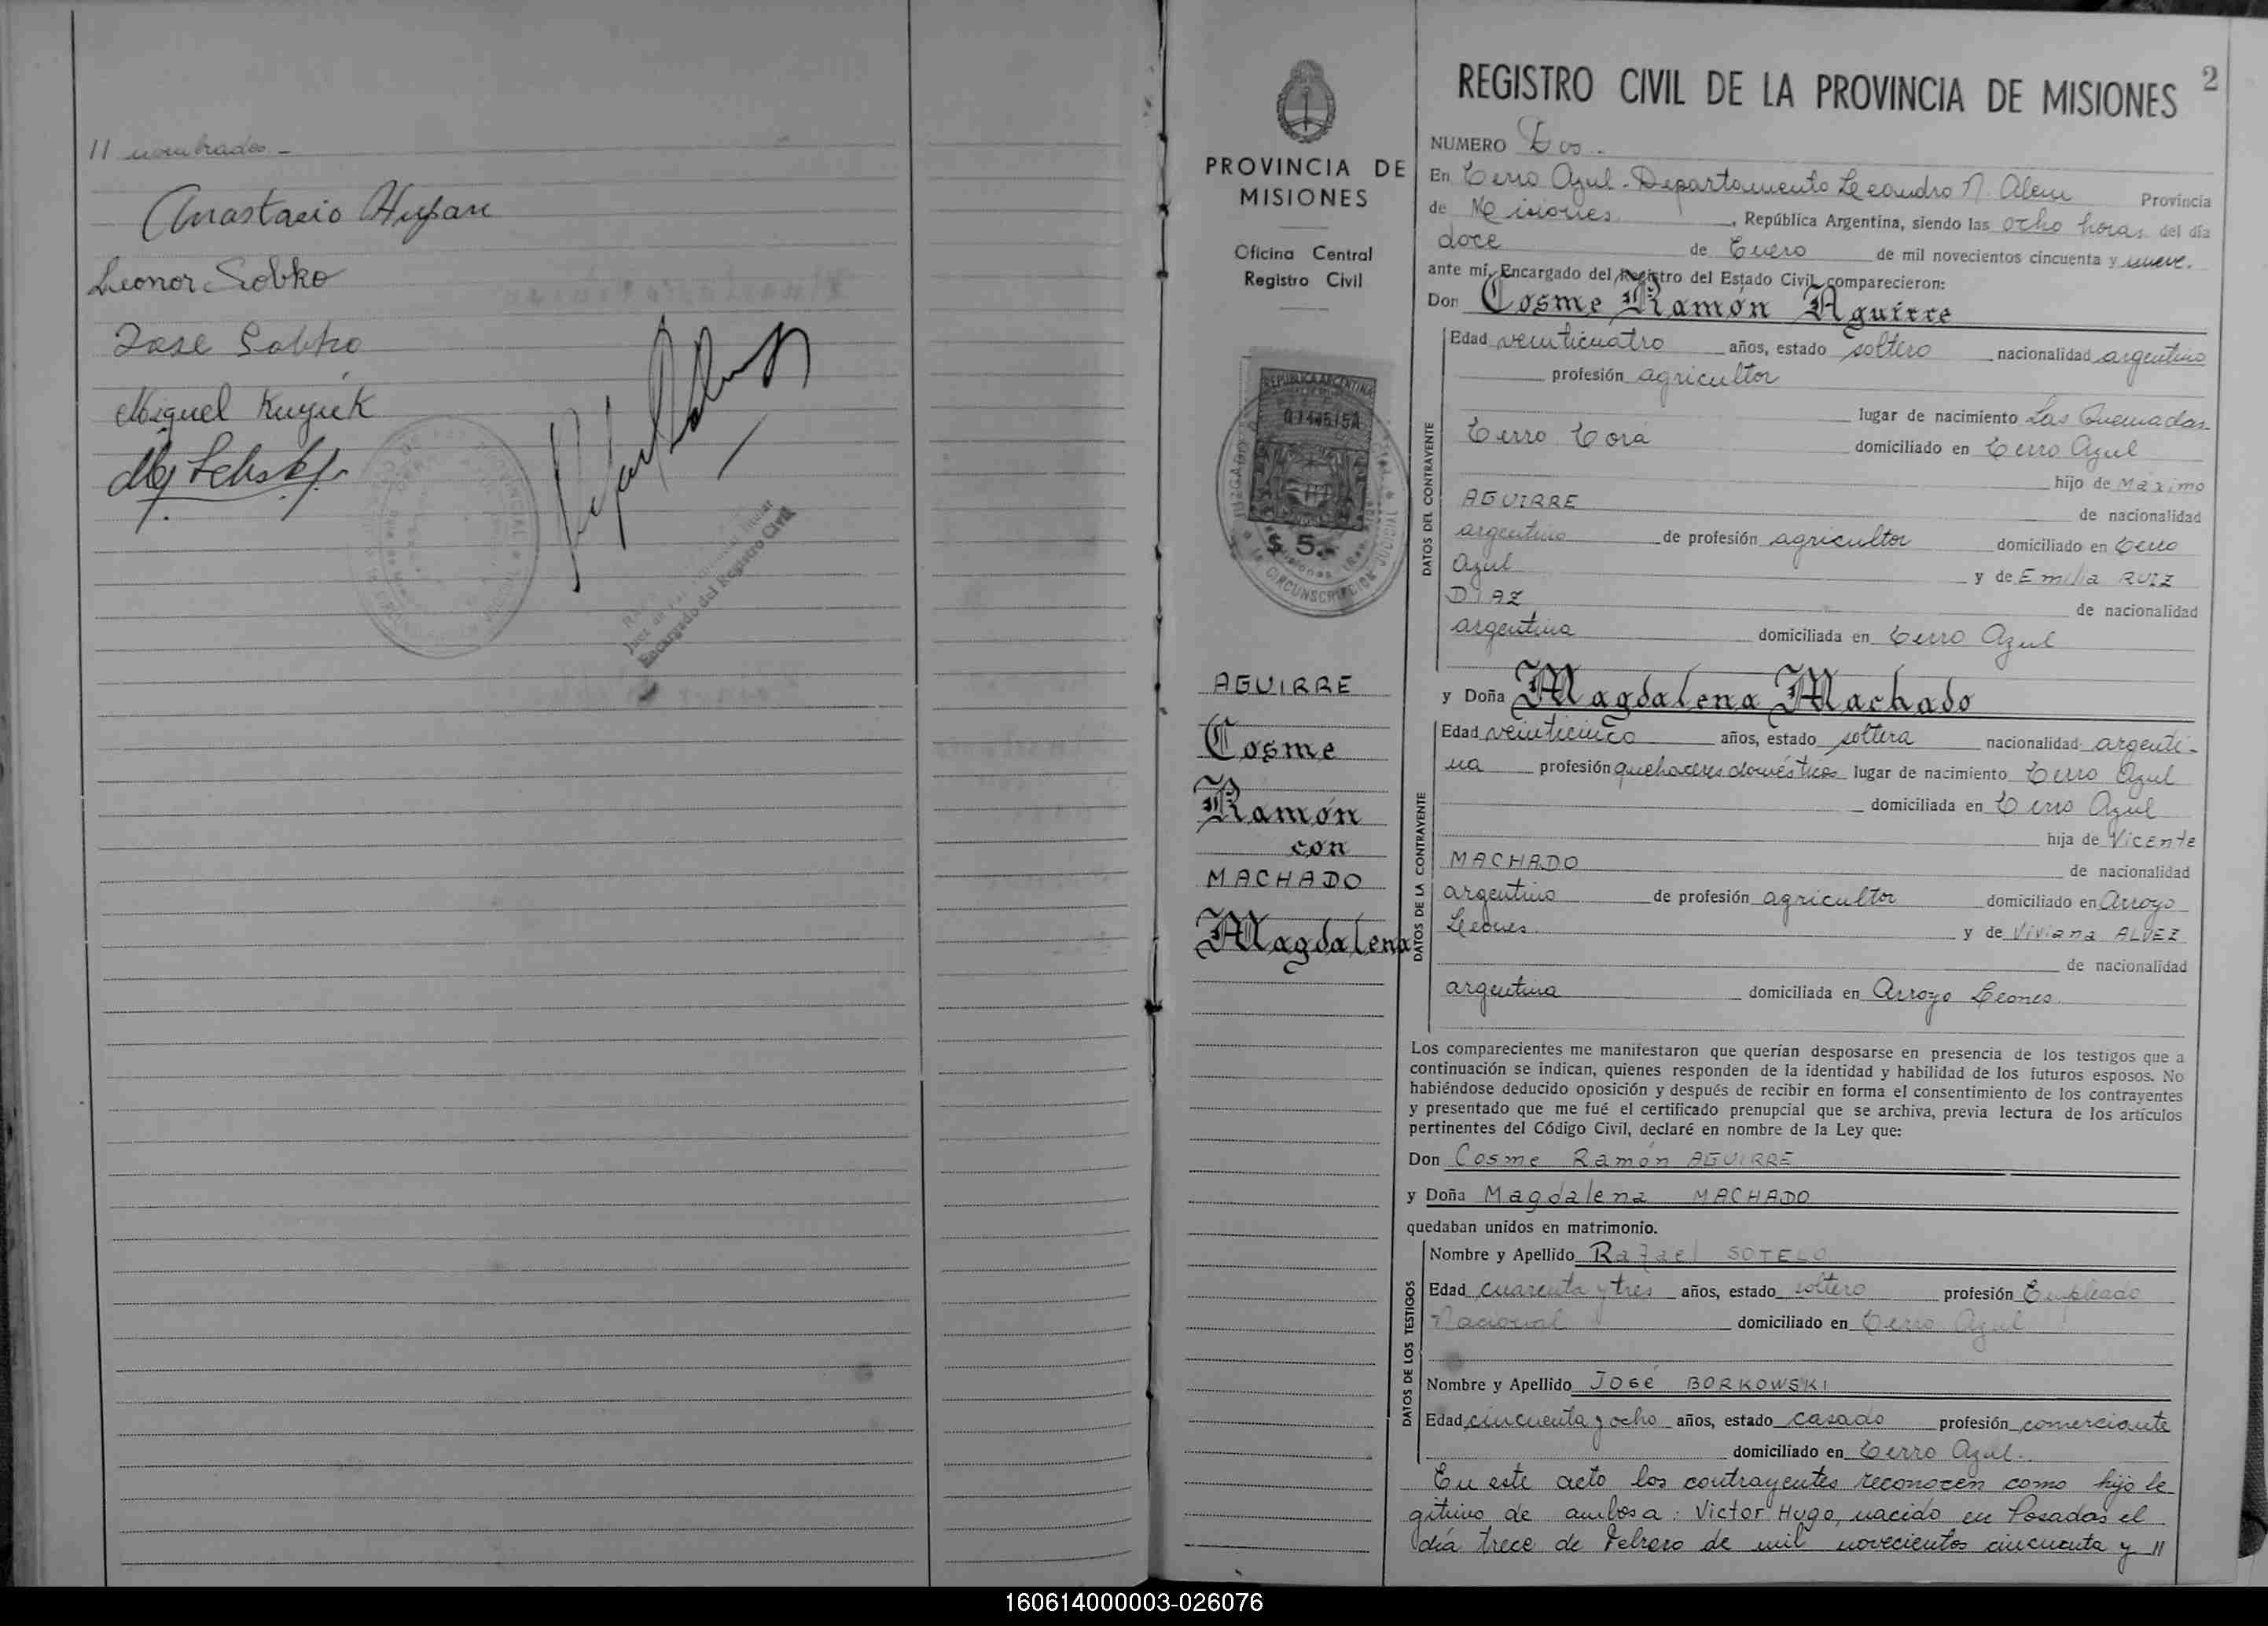 11 nombrados -
Anastacio Hupan
Leonor Sobko
Jose Sobko
Miguel Kuyiek
Encargado del Registro Civil
2
REGISTRO CIVIL DE LA PROVINCIA DE MISIONES
PROVINCIA DE
MISIONES
Oficina Central
Registro Civil
REPUBLICA ARGENTINA
$ 5.-
CIRCUNSCRIPCION JUDICIAL
AGUIRRE
Cosme
Ramón
con
MACHADO
Magdalena
NUMERO Dos.
En Cerro Azul - Departamento Leandro N. Alem Provincia
de Misiones, República Argentina, siendo las ocho horas del día
doce de Enero de mil novecientos cincuenta y nueve.
ante mí, Encargado del Registro del Estado Civil comparecieron:
Don Cosme Ramón Aguirre
DATOS DEL CONTRAYENTE
Edad veinticuatro años, estado soltero nacionalidad argentino
profesión agricultor
lugar de nacimiento Las Quemadas
Cerro Corá domiciliado en Cerro Azul
hijo de Máximo
AGUIRRE de nacionalidad
argentino de profesión agricultor domiciliado en Cerro
Azul y de Emilia RUIZ
DIAZ de nacionalidad
argentina domiciliada en Cerro Azul
y Doña Magdalena Machado
DATOS DE LA CONTRAYENTE
Edad veinticinco años, estado soltera nacionalidad argenti-
na profesión quehaceres domésticos lugar de nacimiento Cerro Azul
domiciliada en Cerro Azul
hija de Vicente
MACHADO de nacionalidad
argentino de profesión agricultor domiciliado en Arroyo
Leones y de Viviana ALVEZ
de nacionalidad
argentina domiciliada en Arroyo Leones.
Los comparecientes me manifestaron que querían desposarse en presencia de los testigos que a
continuación se indican, quienes responden de la identidad y habilidad de los futuros esposos. No
habiéndose deducido oposición y después de recibir en forma el consentimiento de los contrayentes
y presentado que me fué el certificado prenupcial que se archiva, previa lectura de los artículos
pertinentes del Código Civil, declaré en nombre de la Ley que:
Don Cosme Ramón AGUIRRE
y Doña Magdalena MACHADO
quedaban unidos en matrimonio.
DATOS DE LOS TESTIGOS
Nombre y Apellido Rafael SOTELO
Edad cuarenta y tres años, estado soltero profesión Empleado
Nacional domiciliado en Cerro Azul
Nombre y Apellido José BORKOWSKI
Edad cincuenta y ocho años, estado casado profesión comerciante
domiciliado en Cerro Azul.
En este acto los contrayentes reconocen como hijo le
gítimo de ambos a: Victor Hugo, nacido en Posadas el
día trece de Febrero de mil novecientos cincuenta y 11
160614000003-026076